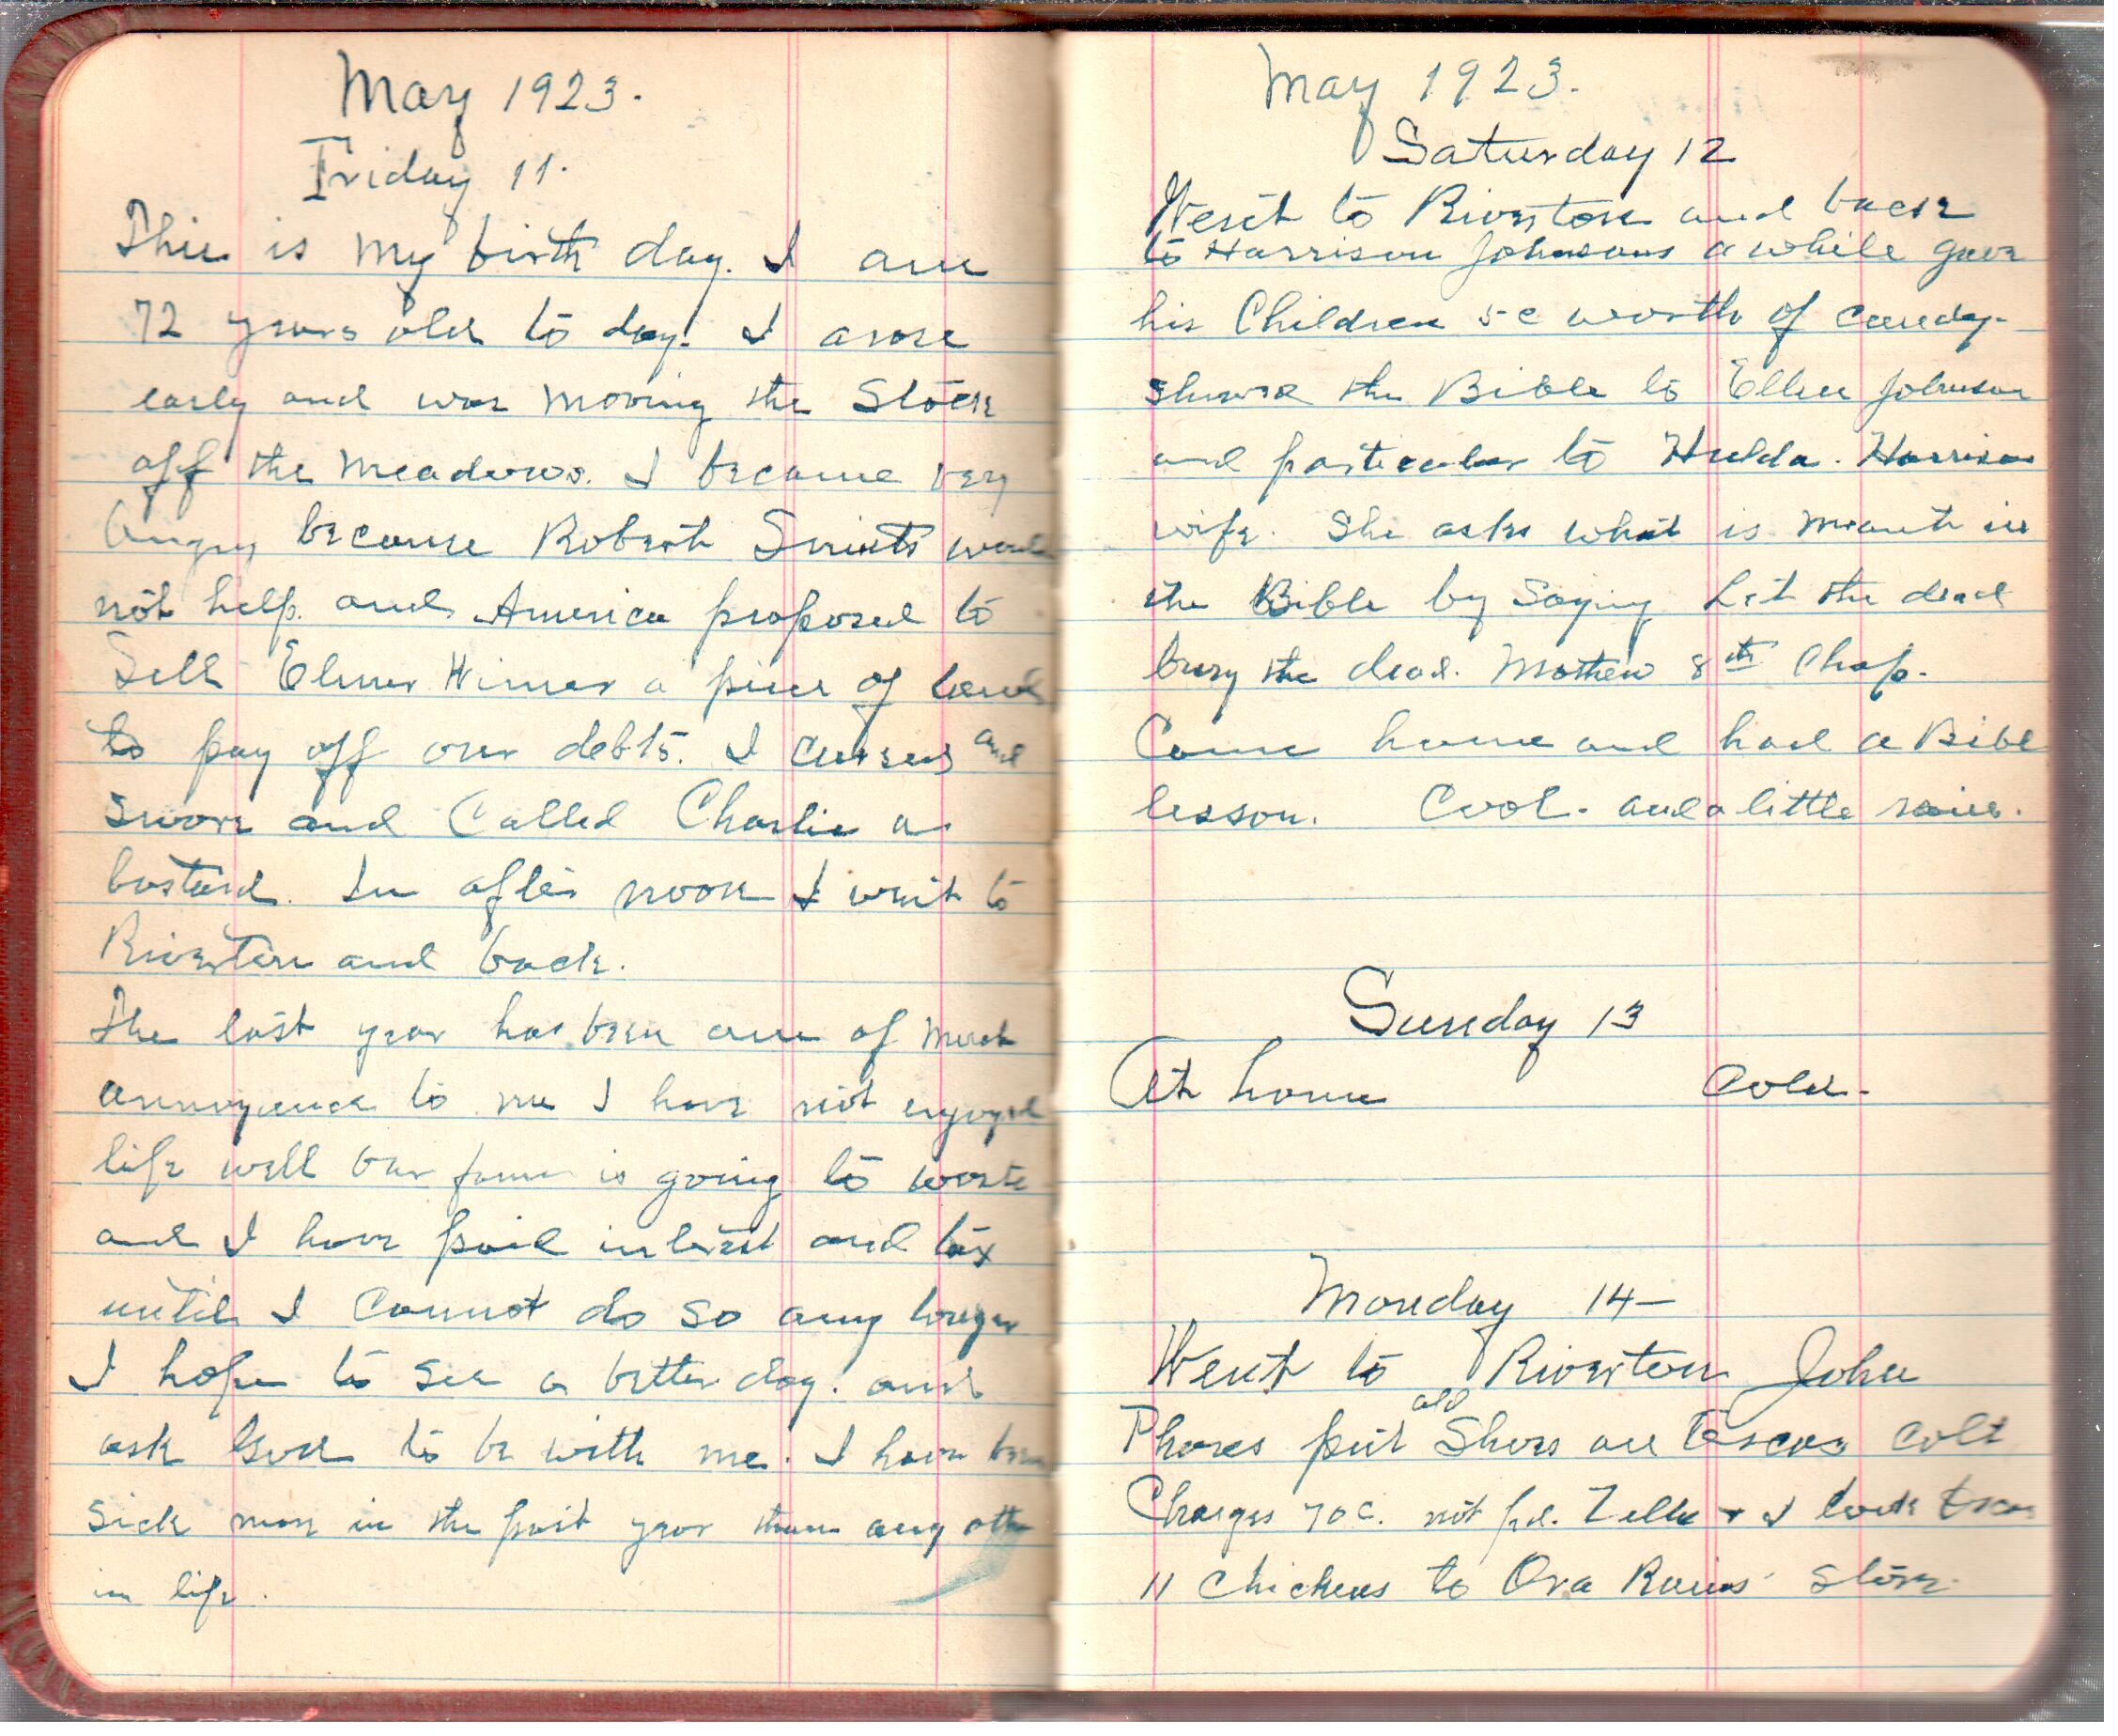 May 1923.
Friday 11.
This is my birth day. I am
72 years old to day. I arose
early and was moving the Stock
off the meadows. I became very
Angry because Robert would
not help. and America proposed to
Sell Elmer Himer a piece of land
to pay off our debts. I cursed and
swore and Called Charlie a
bastard. In after noon I went to
Riverton and back.
The last year has been one of much
annoyance to me I have not enjoyed
life well Our farm is going to waste
and I have paid interest and tax
until I Cannot do so any longer
I hope to see a better day. and
ask God to be with me. I have been
sick more in the past year than any other
in life.
May 1923.
Saturday 12
Went to Riverton and back
to Harrison Johnsons a while gave
his Children 5c worth of candy.
showed the Bible to Ellen Johnson
and particular to Hulda. Harrison
wife. She asks what is meant in
the Bible by Saying Let the dead
bury the dead. Mathew 8th Chap.
Came home and had a Bible
lesson. Cool. and a little rain.
Sunday 13
At home Cold.
Monday 14-
Went to Riverton John
Phares put old Shoes on Oscar Colt
Charges 70c. not pd. Zella + I took
11 Chickens to Ora Rains' Store.